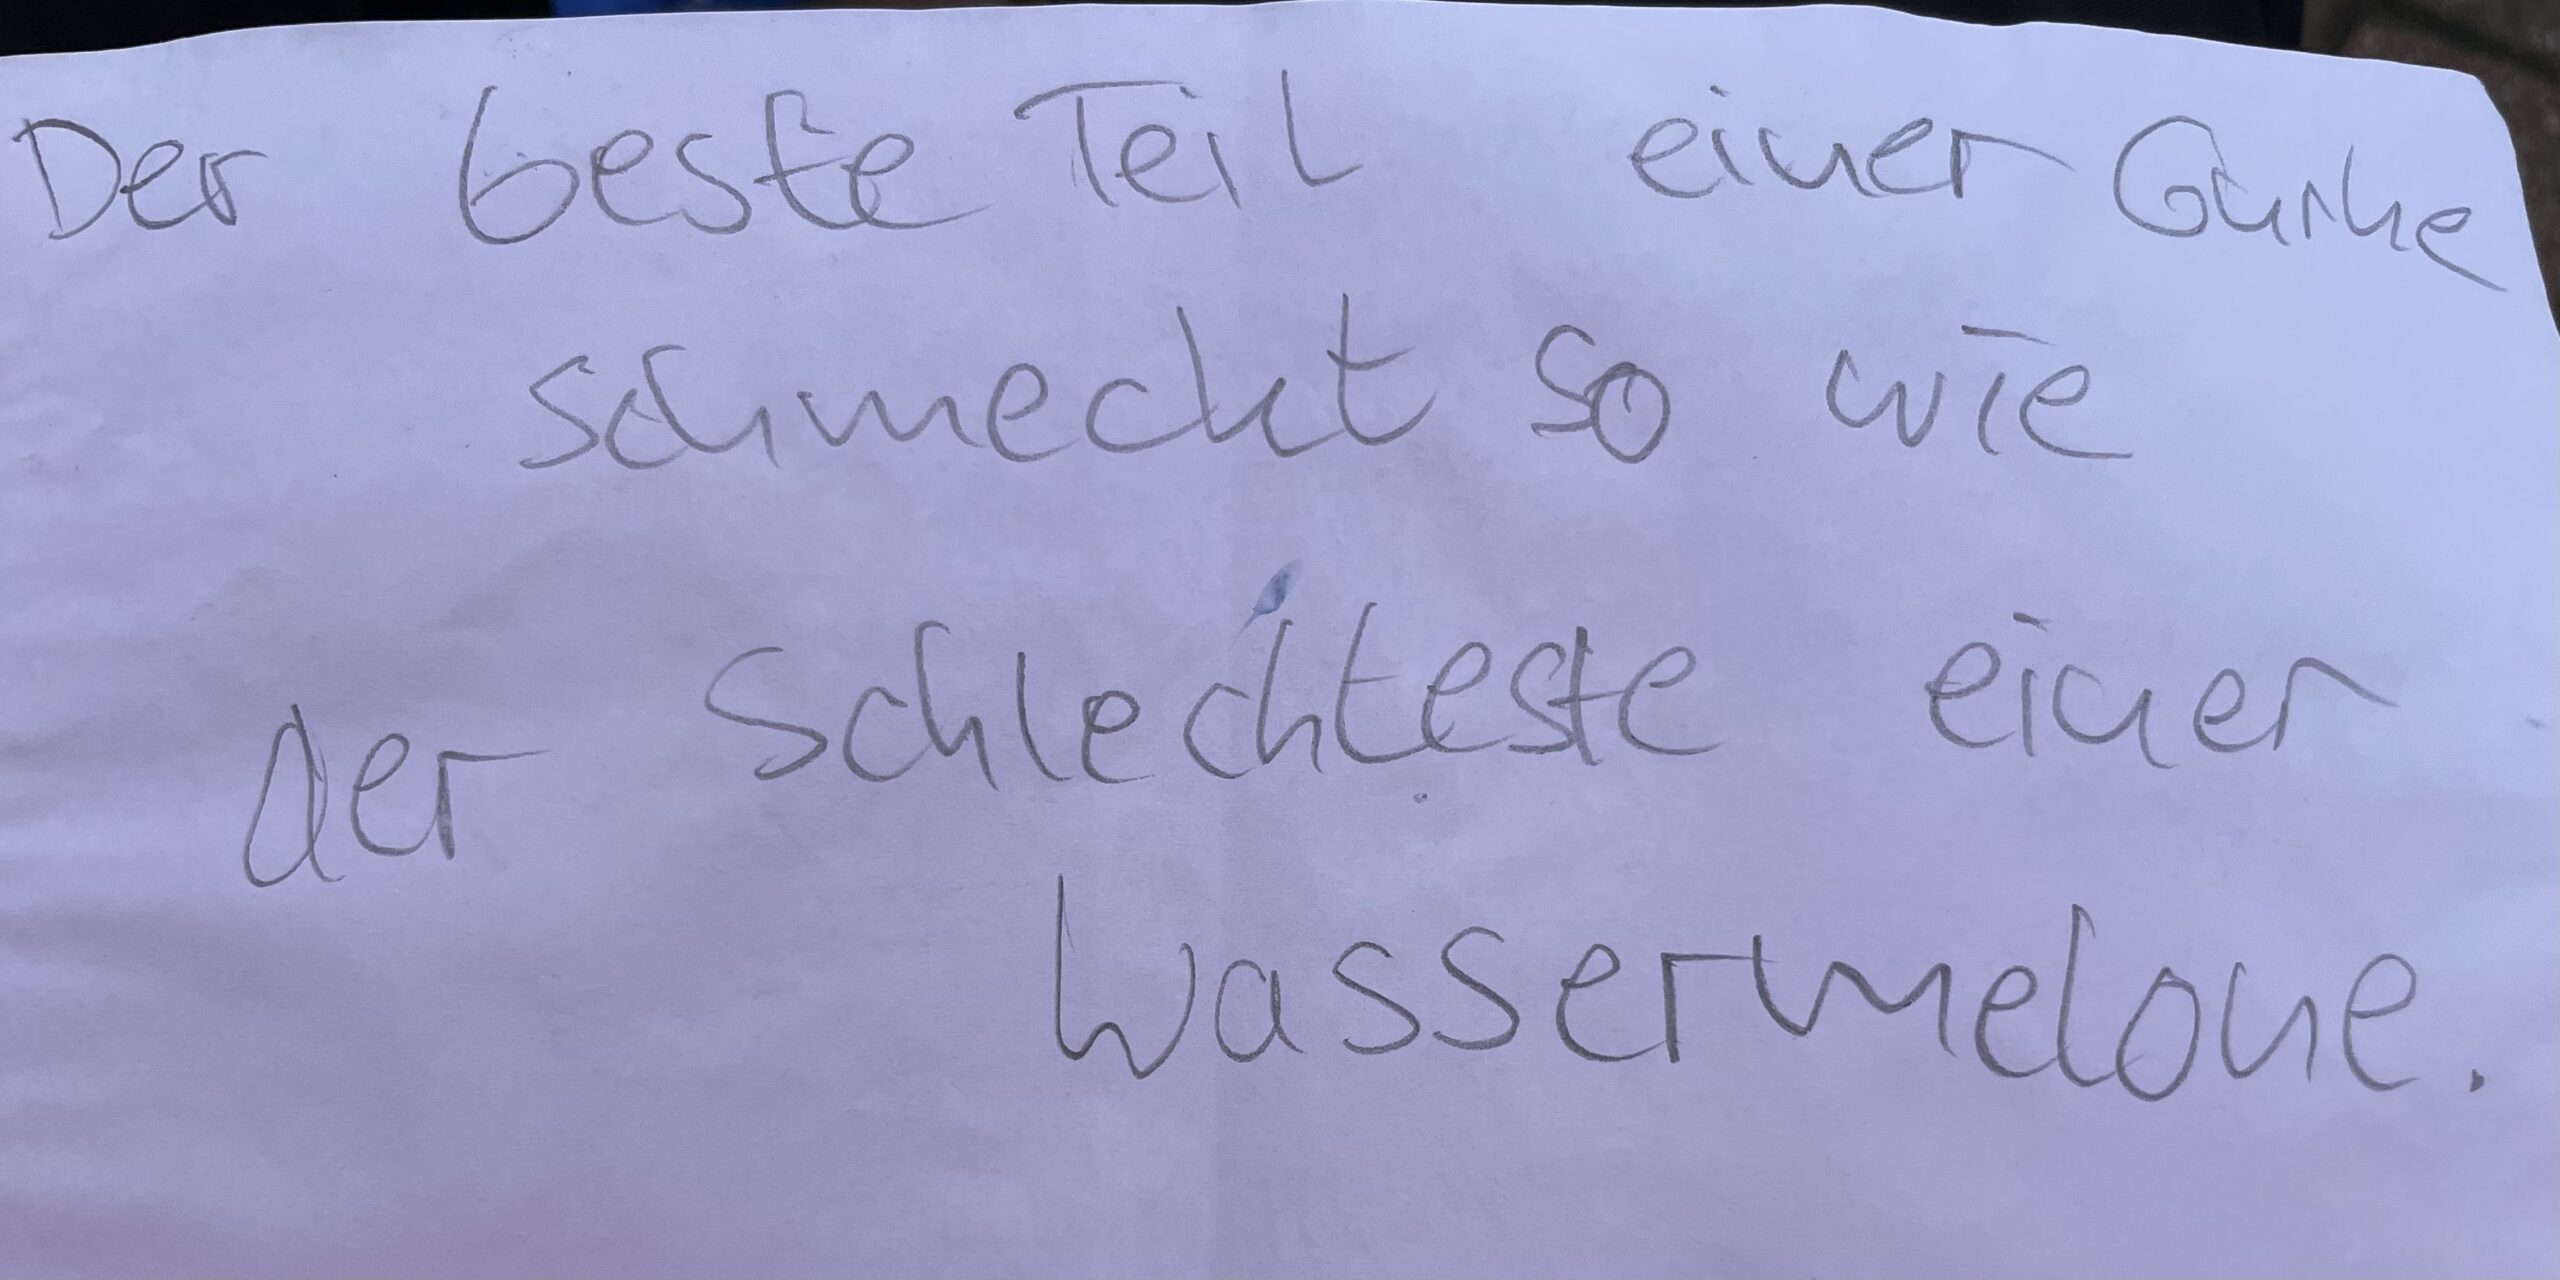 Der beste Teil einer Gurke
schmeckt so wie
der schlechteste einer
Wassermelone.